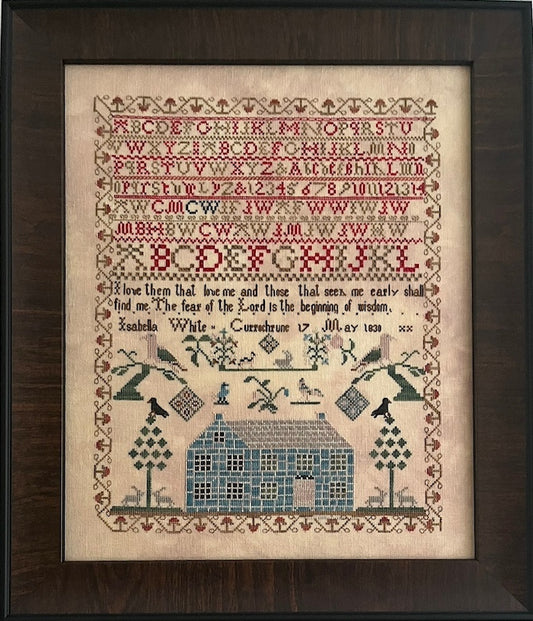 ABCDEFGHIJKLMNOPQRSTU
VWXYZABCDEFGHIJKLMNO
PQRSTUVWXYZ&
&1234567891011121314
CM CW JW JW
MBH BW CW JW JW
ABCDEFGHIJKL
I love them that love me and those that seek me early shall
find me. The fear of the Lord is the beginning of wisdom. . . .
Isabella White - Currochrune 17 May 1830 xx